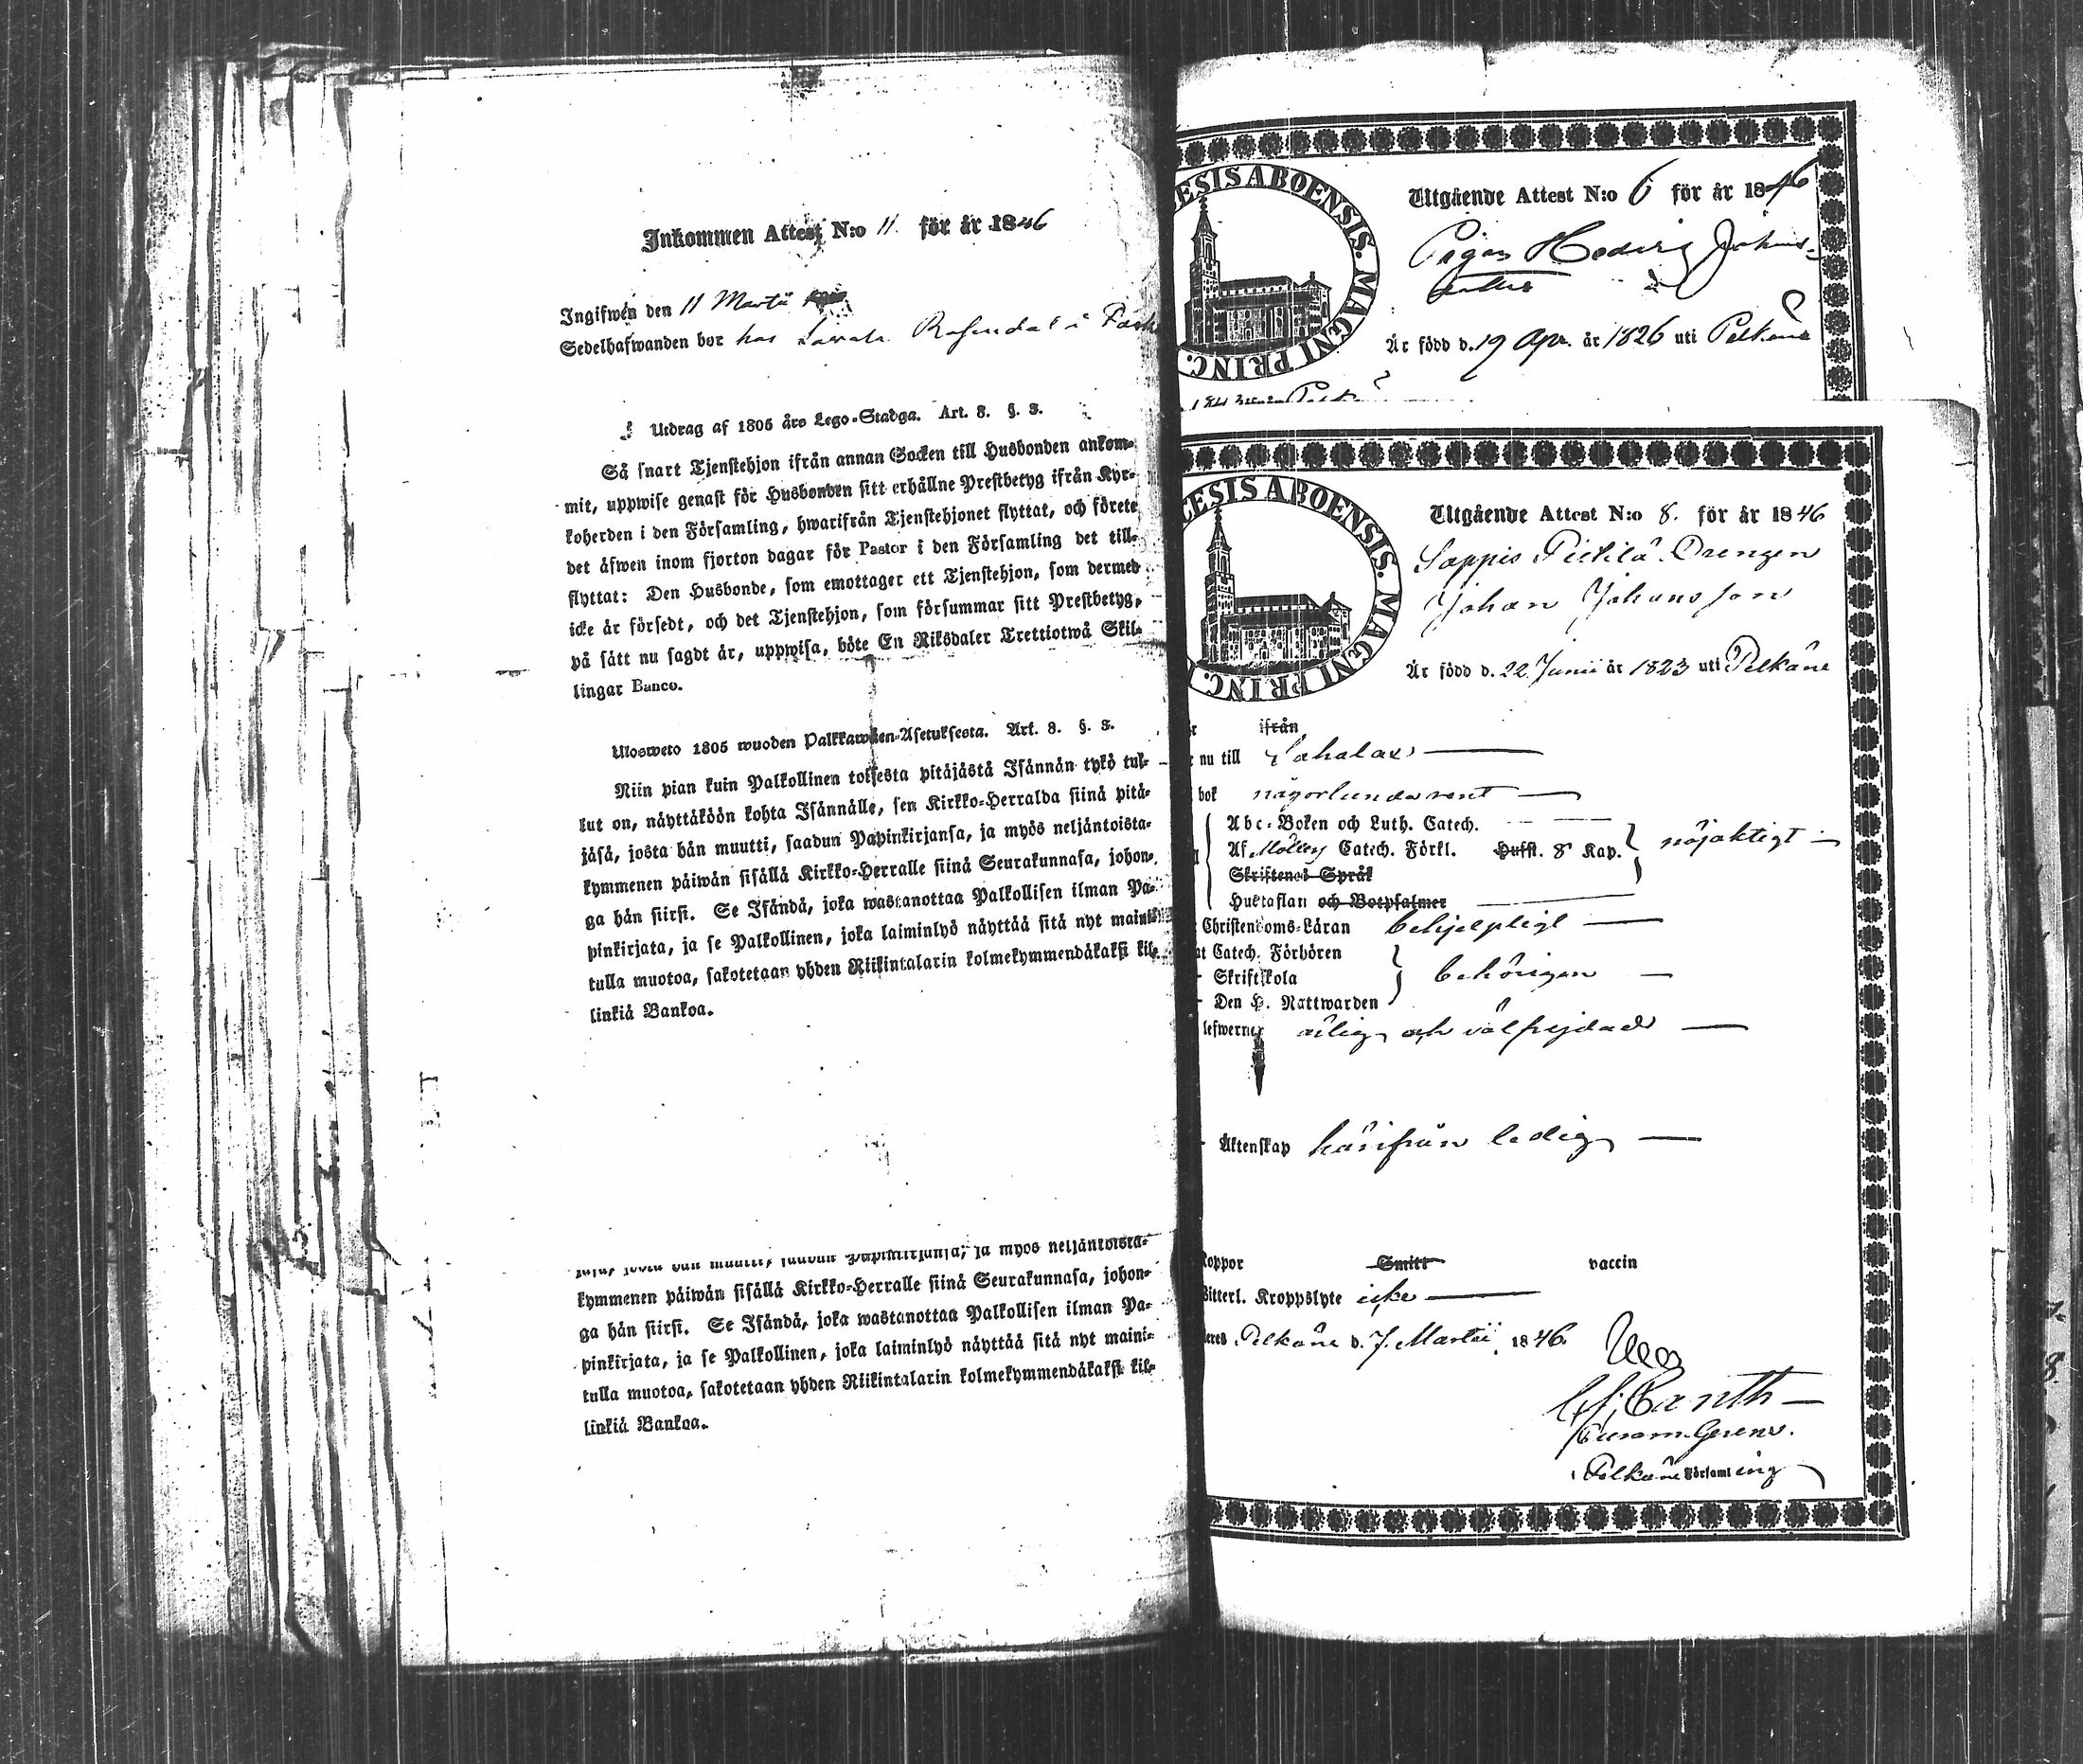 Inkommen Attest N:o 11. för år 1846
Ingifwen den 11 Martii
Sedelhafwanden bor hos
Utdrag af 1805 års Lego-Stadga. Art. 8. §. 3.
Så snart Tjenstehjon ifrån annan Socken till Husbonden ankom-
mit, uppwise genast för Husbonden sitt erhållne Prestbetyg ifrån Kyr-
koherden i den Församling, hwarifrån Tjenstehjonet flyttat, och förete
det äfwen inom fjorton dagar för Pastor i den Församling det till-
flyttat: Den Husbonde, som emottager ett Tjenstehjon, som dermed
icke är försedt, och det Tjenstehjon, som försummar sitt Prestbetyg,
på sätt nu sagdt är, uppwisa, böte En Riksdaler Trettiotwå Skil-
lingar Banco.
Ulosweto 1805 wuoden Palkkawäen-Asetuksesta. Art. 8. §. 3.
Niin pian kuin Palkollinen toisesta pitäjästä Isännän tykö tul-
lut on, näyttäköön kohta Isännälle, sen Kirkko-Herralda siinä pitä-
jäsä, josta hän muutti, saadun Papinkirjansa, ja myös neljäntoista-
kymmenen päiwän sisällä Kirkko-Herralle siinä Seurakunnasa, johon-
ga hän siirsi. Se Isändä, joka wastanottaa Palkollisen ilman Pa-
pinkirjata, ja se Palkollinen, joka laiminlyö näyttää sitä nyt mainit-
tulla muotoa, sakotetaan yhden Riikintalarin kolmekymmendäkaksi kil-
linkiä Bankoa.
jäsä, josta hän muutti, saadun Papinkirjansa, ja myös neljäntoista-
kymmenen päiwän sisällä Kirkko-Herralle siinä Seurakunnasa, johon-
ga hän siirsi. Se Isändä, joka wastanottaa Palkollisen ilman Pa-
pinkirjata, ja se Palkollinen, joka laiminlyö näyttää sitä nyt maini-
tulla muotoa, sakotetaan yhden Riikintalarin kolmekymmendäkaksi kil-
linkiä Bankoa.
ESIS ABOENSIS. MAGNI PRINC.
Utgående Attest N:o 6 för år 1846
Pigan Hedvig Johans-
Är född d. 19 Apr. år 1826 uti Pelkäne
CESIS ABOENSIS. MAGNI PRINC.
Utgående Attest N:o 8. för år 1846
Sappis Pietilä Drengen
Johan Johansson
Är född d. 22 Junii år 1823 uti Pelkäne
ifrån
nu till Sahalax
bok någorlunda rent
Abc-Boken och Luth. Catech.
Af Catech. Förkl. Husfl. 8 Kap. nöjaktigt
Skriftenes Språk
Hustaflan och Botpsalmer
Christendoms-Läran behjelpligt
Catech. Förhören
Skriftskola behörigen
Den H. Nattwarden
lefwerne ärlig och välfrejdad
Äktenskap härifrån ledig
Koppor Smitt vaccin
Witterl. Kroppslyte icke
Pelkäne d. 7. Martii 1846.
Canth
Pelkäne Församling